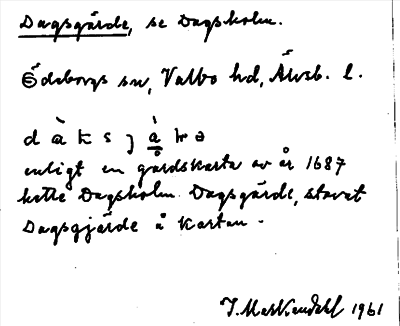 Dagsgärde, se Dagsholm.
Ödeborgs sn, Valbo hd, Älvsb. l.
enligt en gårdskarta av år 1687
hette Dagsholm. Dagsgärde, stavat
Dagsgjärde å kartan.
1961